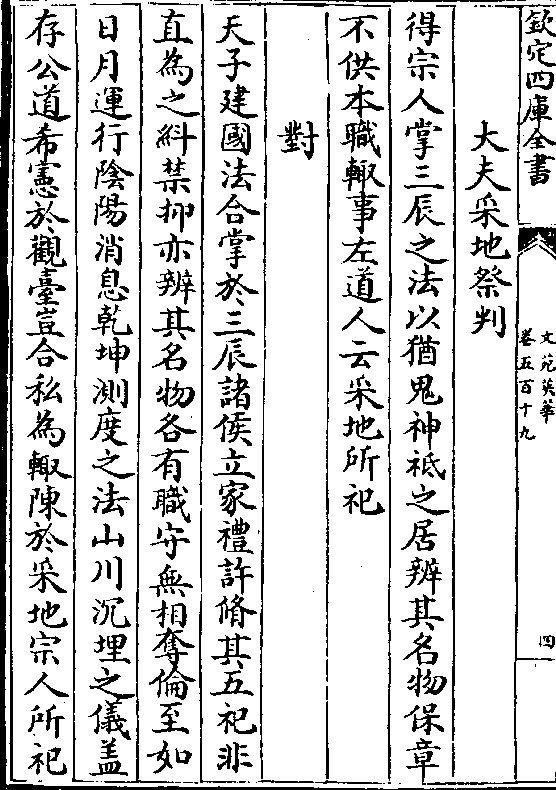 欽定四庫全書
文苑英華
卷五百十九
四
大夫采地祭判
得宗人掌三辰之法以猶鬼神祗之居辨其名物保章
不供本職輙事左道人云采地所祀
對
天子建國法合掌於三辰諸侯立家禮許脩其五祀非
直為之糾禁抑亦辨其名物各有職守無相奪倫至如
日月運行陰陽消息乾坤測度之法山川沉埋之儀蓋
存公道希憲於觀臺豈合私為輙陳於采地宗人所祀